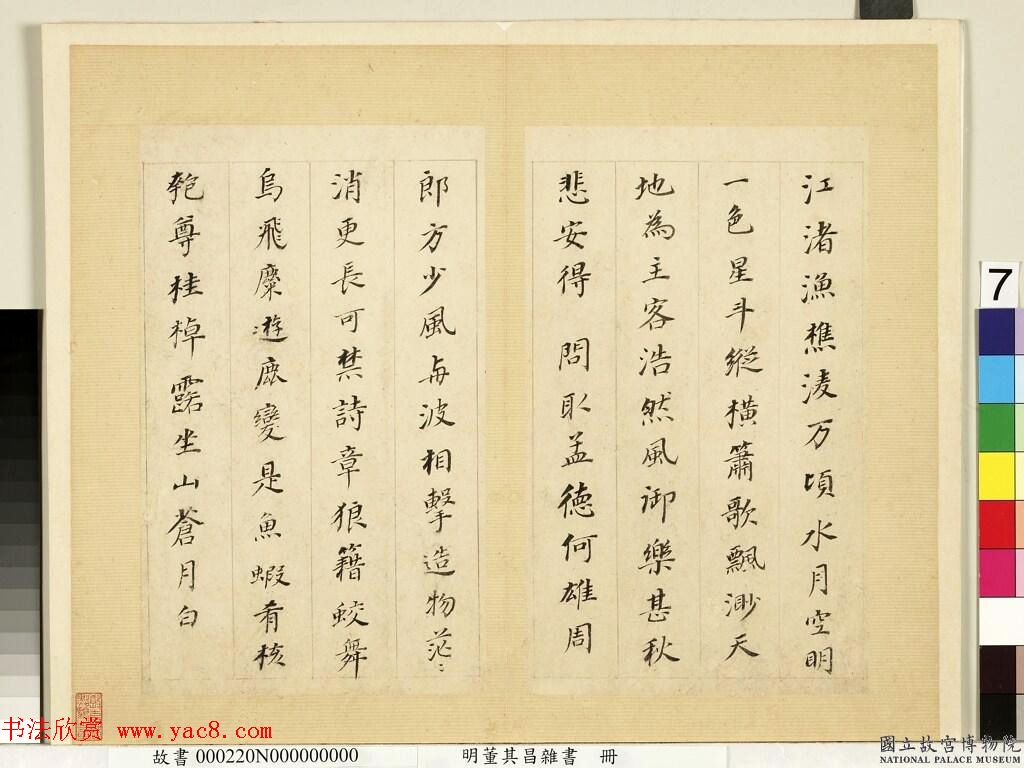 江渚漁樵淩万頃水月空明
一色星斗縱橫簫歌飄渺天
地為主客浩然風御樂甚秋
悲安得 問取孟德何雄周
郎方少風与波相擊造物茫〻
消更長可禁詩章狼籍蛟舞
烏飛麋遊鹿變是魚蝦肴核
匏尊桂棹露坐山蒼月白
7
书法欣赏 www.yac8.com
故書 000220N000000000 明董其昌雜書 冊
國立故宮博物院
NATIONAL PALACE MUSEUM